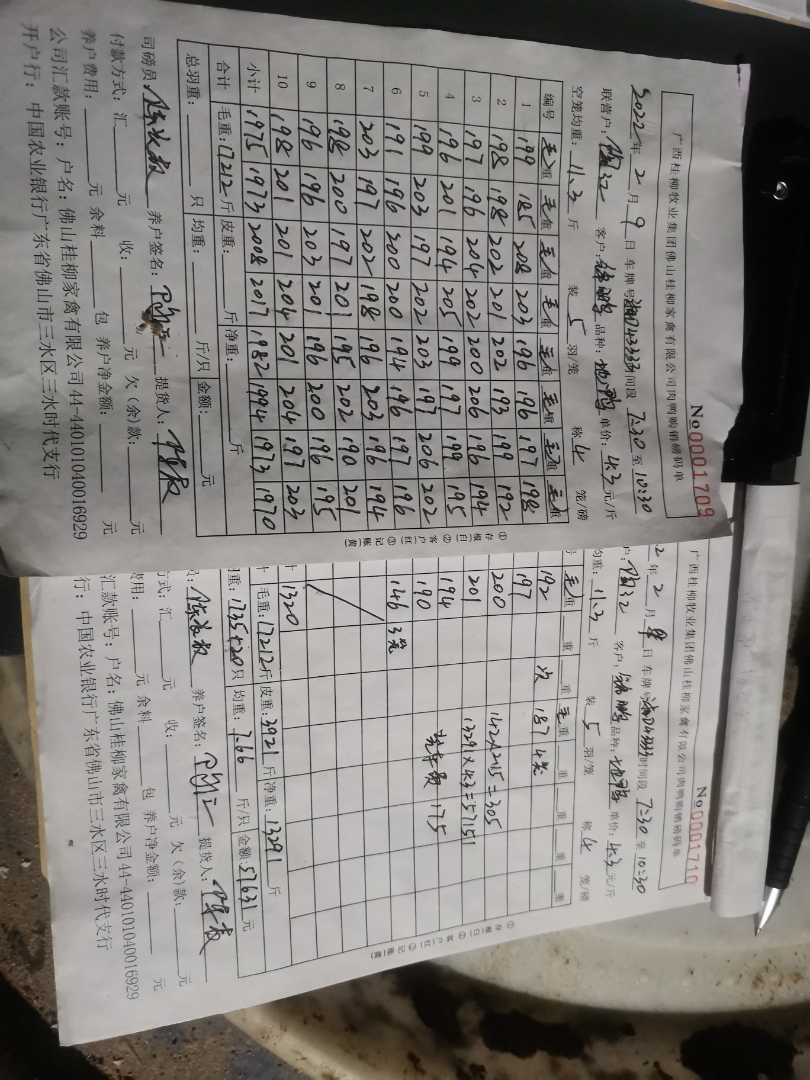 广西桂柳牧业集团佛山桂柳家禽有限公司肉鸭购销磅码单
No 0001709
2022年 2 月 9 日 车牌号 时间段 7:30 至 10:30
联营户: 客户: 品种: 单价: 4.3 元/斤
空笼均重: 11.3 斤 装 5 羽/笼 称 4 笼/磅
编号 毛重 毛重 毛重 毛重 毛重 毛重 毛重 毛重
1 199 185 208 203 196 196 197 198
2 198 198 202 201 202 193 199 192
3 197 196 204 202 200 206 196 194
4 196 201 194 205 199 197 199 195
5 199 203 197 202 203 197 206 202
6 191 196 200 200 194 196 197 196
7 203 197 202 198 196 203 196 194
8 198 200 197 201 195 202 190 201
9 196 196 203 201 196 200 196 195
10 198 201 201 204 201 204 197 203
小计 1975 1973 2008 2017 1982 1994 1973 1970
合计 毛重: 17212 斤 皮重: 斤 净重: 斤
总羽重: 只 均重: 斤/只 金额: 元
司磅员: 养户签名: 提货人:
付款方式: 汇 元 收: 元 欠(余)款: 元
养户费用: 元 余料 包 养户净金额: 元
公司汇款账号: 户名: 佛山桂柳家禽有限公司44-440101040016929
开户行: 中国农业银行广东省佛山市三水区三水时代支行
①存根(白) ②客户(红) ③记账(黄)
广西桂柳牧业集团佛山桂柳家禽有限公司肉鸭购销磅码单
No 0001710
2年 2 月 9 日 车牌号 时间段 7:30 至 10:30
户: 客户: 品种: 单价: 4.3 元/斤
均重: 11.3 斤 装 5 羽/笼 称 4 笼/磅
号 毛重 重 重 毛重 重 重 重 重
192 次 187 4笼
197
200 142+215=305
201 13291×4.3=57151
194 洗车费 175
190
146 3笼
计 1320
毛重: 17212 斤 皮重: 3921 斤 净重: 13291 斤
羽重: 1735+20 只 均重: 7.66 斤/只 金额: 57631 元
员: 养户签名: 提货人:
方式: 汇 元 收: 元 欠(余)款: 元
费用: 元 余料 包 养户净金额: 元
汇款账号: 户名: 佛山桂柳家禽有限公司44-440101040016929
行: 中国农业银行广东省佛山市三水区三水时代支行
①存根(白) ②客户(红) ③记账(黄)